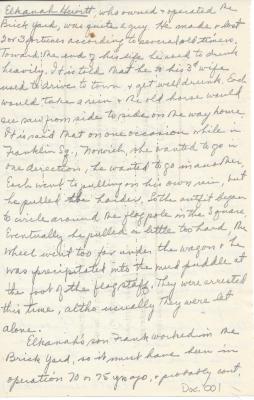 Elkanah Hewitt, who owned & operated the
Brick Yard, was quite a guy. He made & lost
2 or 3 fortunes according to several old timers.
Toward the end of his life he used to drink
heavily. It is told that he & his 3rd wife
used to drive to town & get well drunk. Each
would take a rein & the old horse would
see saw from side to side on the way home.
It is said that on one occasion while in
Franklin Sq., Norwich, she wanted to go in
one direction, he wanted to go in another,
Each went to pulling on his own rein, but
he pulled the harder, so the outfit began
to circle around the flag pole in the Square.
Eventually he pulled a little too hard the
wheel went too far under the wagon & he
was precipitated into the mud puddle at
the foot of the flag staff. They were arrested
this time, altho usually they were let
alone.
Elkanah's son Frank worked in the
Brick Yard, so it must have been in
operation 70 or 75 yrs ago, & probably cont.
Doc. 001